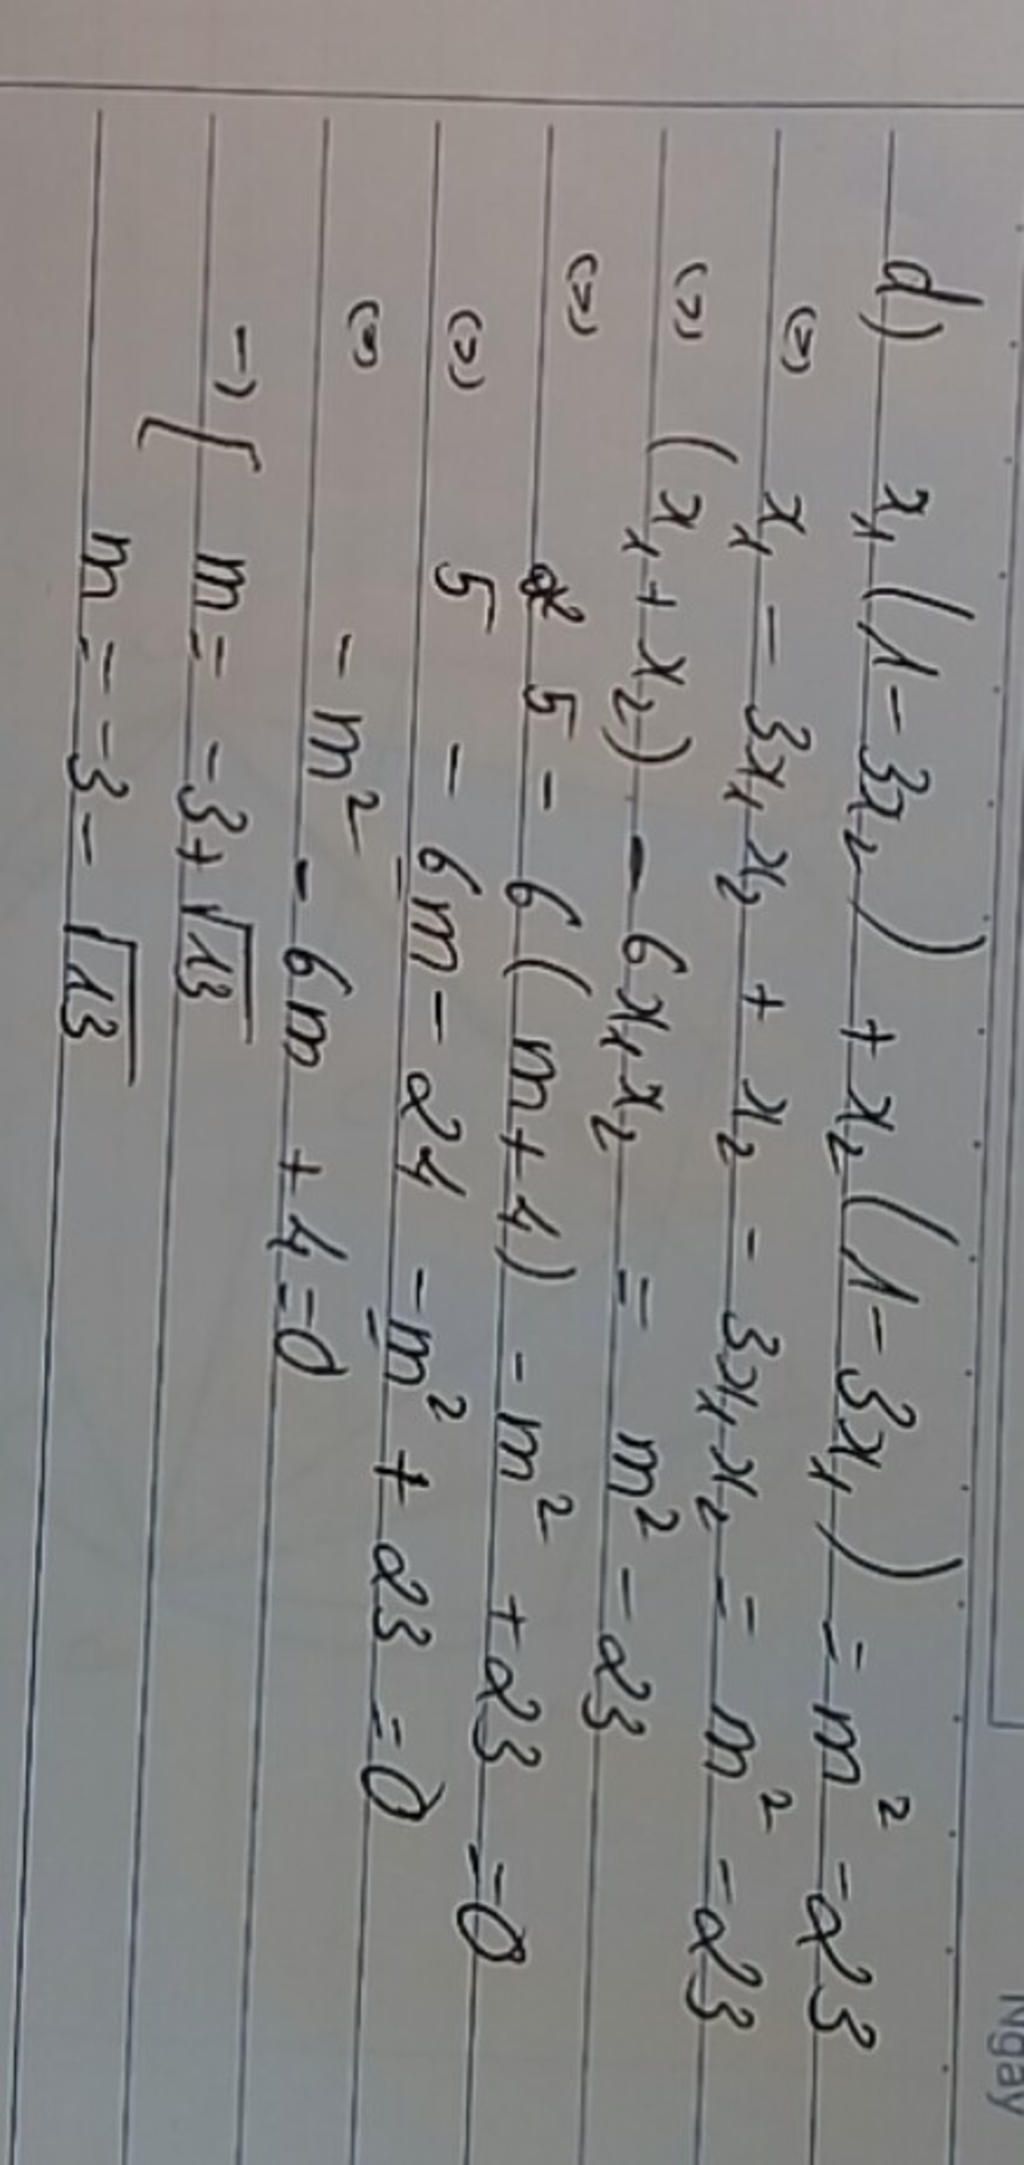 Ngày
d) x₁(1-3x₂) + x₂(1-3x₁) = m² - 23
(=) x₁ - 3x₁x₂ + x₂ - 3x₁x₂ = m² - 23
(=) (x₁+x₂) - 6x₁x₂ = m² - 23
(=) 5 - 6(m+4) - m² + 23 = 0
(=) 5 - 6m - 24 - m² + 23 = 0
(=) - m² - 6m + 4 = 0
→ [ m = -3+√13
m = -3-√13